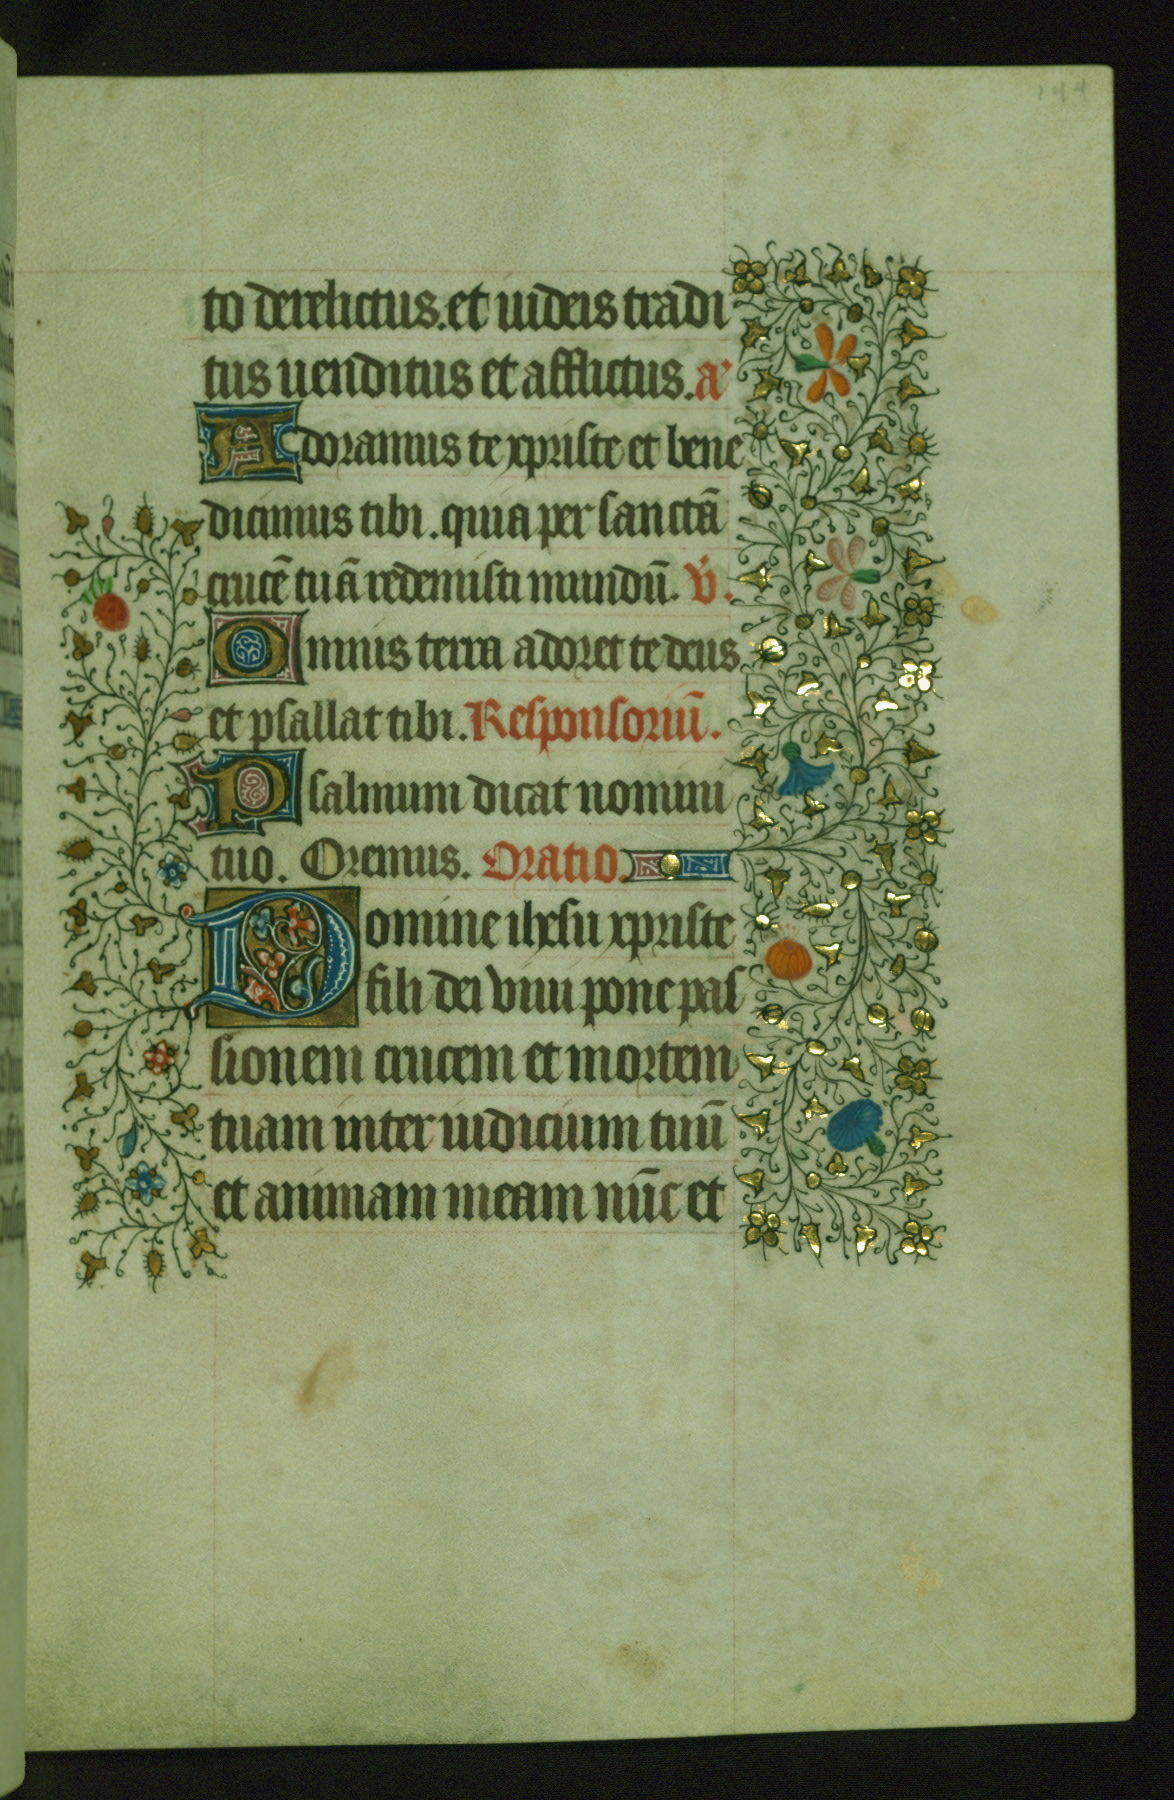 144
to derelictus. et iudeis tradi
tus uenditus et afflictus. a
Adoramus te xpriste et bene
dicimus tibi. quia per sanctā
crucē tuā redemisti mundū. v̄.
Omnis terra adoret te deus
et psallat tibi. Responsoriū.
Psalmum dicat nomini
tuo. Oremus. Oratio.
Domine ihesu xpriste
fili dei viui pone pas
sionem crucem et mortem
tuam inter iudicium tuū
et animam meam nūc et